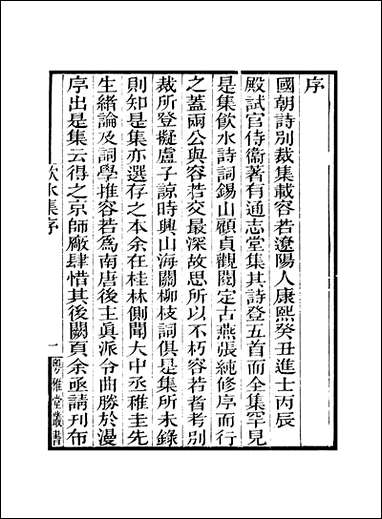 序
國朝詩別裁集載容若遼陽人康熙癸丑進士丙辰
殿試官侍衞著有通志堂集其詩登五首而全集罕見
是集飲水詩詞錫山顧貞觀閱定古燕張純修序而行
之蓋兩公與容若交最深故思所以不朽容若者考別
裁所登擬盧子諒時興山海關柳枝詞俱是集所未錄
則知是集亦選存之本余在桂林側聞大中丞稚圭先
生緒論及詞學推容若為南唐後主眞派令曲勝於漫
序出是集云得之京師廠肆惜其後闕頁余亟請刊布
飲水集序
一
粵雅堂叢書